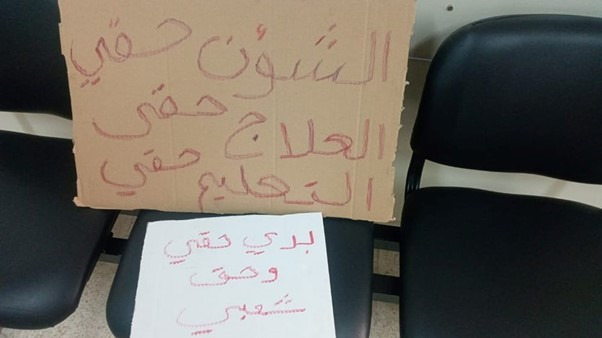 الشؤن حقي
العلاج حقي
التعليم حقي
بدي حقي
وحق
شعبي